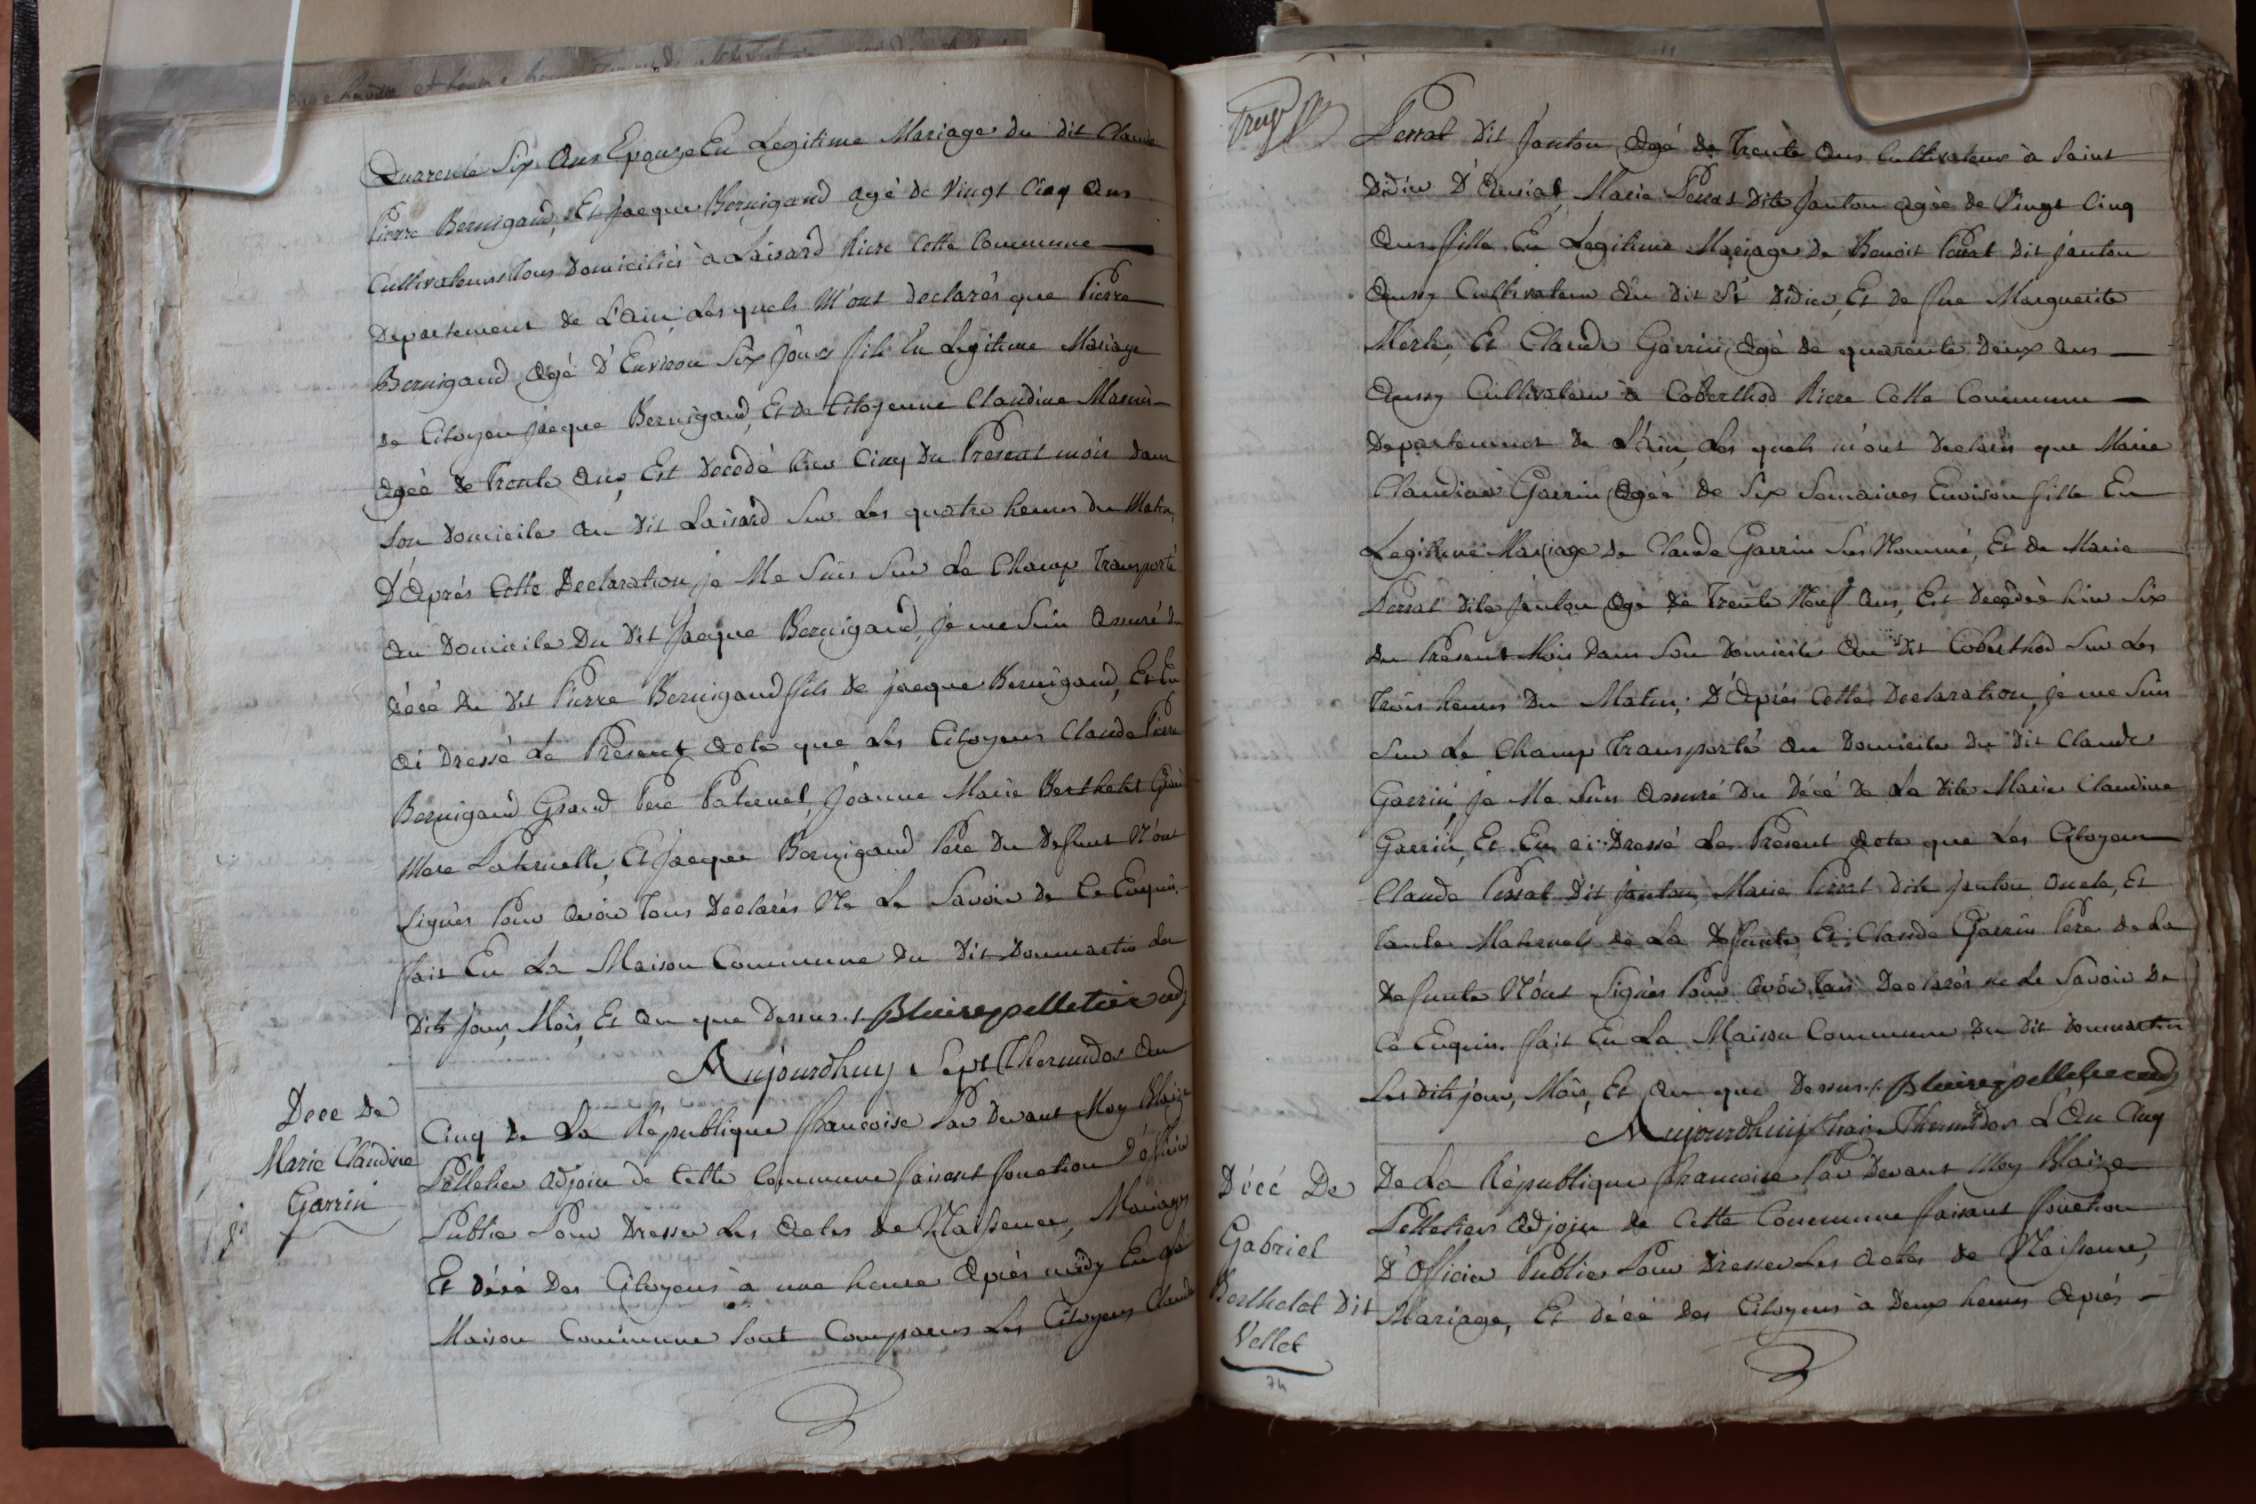 Quarente Six Ans Epouze En Legitime Mariage du dit Claude
Pierre Bernigaud, Et Jacque Bernigaud agé de Vingt Cinq Ans
Cultivateurs tous Domiciliés à Laisard Riere Cette Commune
Departement de L'ain, Les quels M'ont declarés que Pierre
Bernigaud Agé D'Environ Six Jours fils En Legitime Mariage
de Citoyen Jacque Bernigaud, Et de Citoyenne Claudine
Agée de Trente Ans, Est Decedé hier Cinq Du Present mois dans
Son Domicile Au dit Laisard Sur Les quatre heures du Matin,
D'Après Cette Declaration je Me Suis Sur Le Champ Transporté
Au Domicile Du dit Jacque Bernigaud, je me suis Assuré du
décé du dit Pierre Bernigaud fils de jacque Bernigaud, Et En
ai Dressé Le Present Acte que Les Citoyens Claude Pierre
Bernigaud Grand Pere Paternel, Joanne Marie Berthelet Grand
Mere Paternelle, Et Jacque Bernigaud Pere Du Defunt N'ont
Signés Pour avoir Tous Declarés Ne Le Savoir de Ce Enquis.
fait En La Maison Commune du Dit Dommartin Les
Dits Jour, Mois, Et An que Dessus. Blaize pelletier adj
Dece De
Marie Claudine
Garrin
Aujourdhuy Sept Thermidor An
Cinq de La République francoise Par Devant Moy Blaize
Pelletier Adjoin de Cette Commune faisant fonction D'officier
Public Pour Dresser Les Actes de Naissence, Mariages
Et Décé Des Citoyens à une heure Après midy En La
Maison Commune Sont Comparus Les Citoyens Claude
Perrat Dit Janton Agé de Trente Ans Cultivateur à Saint
Didier D'Aussiat, Marie Perrat Dite Janton agée de Vingt Cinq
Ans fille En Legitime Mariage de Benoit Perrat Dit Janton
Aussy Cultivateur Au Dit St Didier, Et de fue Marguerite
Merle, Et Claude Garrin Agé de quarente Deux Ans
Aussy Cultivateur à Coberthod Riere Cette Commune
Departement de L'Ain, Les quels m'ont Declarés que Marie
Claudine Garrin Agée de Six Semaines Environ fille En
Legitime Mariage de Claude Garrin Sus Nommé, Et de Marie
Perrat Dite Janton Agé De Trente Neuf Ans, Est Decedée hier Six
du Present Mois Dans Son Domicile Au Dit Coberthod Sur Les
Trois heures Du Matin, D'Après Cette Declaration, je me Suis
Sur Le Champ Transporté Au Domicile Du Dit Claude
Garrin, je Me Suis Assuré Du Décé De La Dite Marie Claudine
Garrin, Et En ai Dressé Le Present Acte que Les Citoyens
Claude Perrat Dit Janton, Marie Perrat Dite Janton Oncle, Et
Tante Maternels De La Defunte, Et Claude Garrin Pere De La
Defunte N'ont Signés Pour avoir Tous Declarés ne Le Savoir De
Ce Enquis. fait En La Maison Commune Du Dit Dommartin
Les Dits jour, Mois, Et An que Dessus. Blaize pelletier adj
Décé De
Gabriel
Berthelet Dit
Vellet
74
Aujourdhuy Thermidor L'An Cinq
De La République francoise Par Devant Moy Blaize
Pelletier Adjoin de Cette Commune faisant fonction
D'Officier Public Pour Dresser Les Actes de Naissence,
Mariage, Et décé Des Citoyens à Deux heures Après